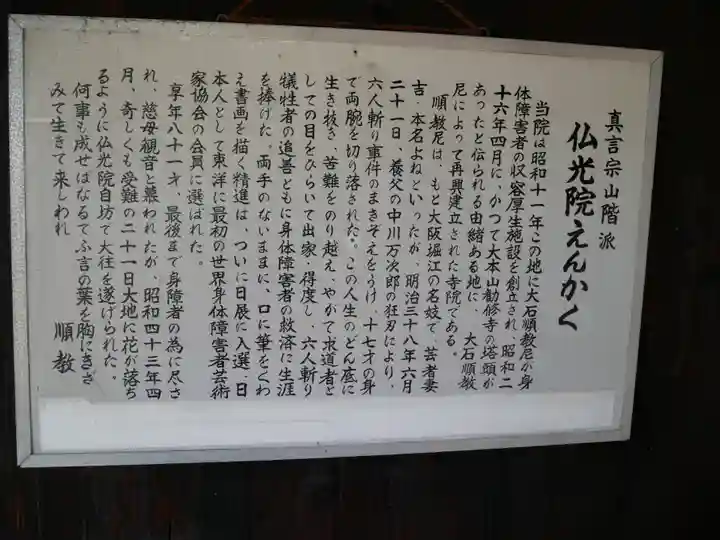 真言宗山階派
仏光院えんかく
当院は昭和十一年この地に大石順教尼が身
体障害者の収容厚生施設を創立され、昭和二
十六年四月に、かつて大本山勧修寺の塔頭が
あったと伝られる由緒ある地に、大石順教
尼によって再興建立された寺院である。
順教尼は、もと大阪堀江の名妓で、芸者妻
吉・本名よねといったが、明治三十八年六月
二十一日、養父の中川万次郎の狂刃により、
六人斬り事件のまきぞえをうけ、十七才の身
で両腕を切り落された。この人生のどん底に
生き抜き、苦難をのり越え、やがて求道者と
しての目をひらいて出家・得度し、六人斬り
犠牲者の追善とともに身体障害者の救済に生涯
を捧げた。両手のないままに、口に筆をくわ
え書画を描く精進は、ついに日展に入選、日
本人として東洋に最初の世界身体障害者芸術
家協会の会員に選ばれた。
享年八十一才、最後まで身障者の為に尽さ
れ、慈母観音と慕われたが、昭和四十三年四
月、奇しくも受難の二十一日大地に花が落ち
るように仏光院自坊で大往を遂げられた。
何事も成せばなるてふ言の葉を胸にきざ
みて生きて来しわれ
順教